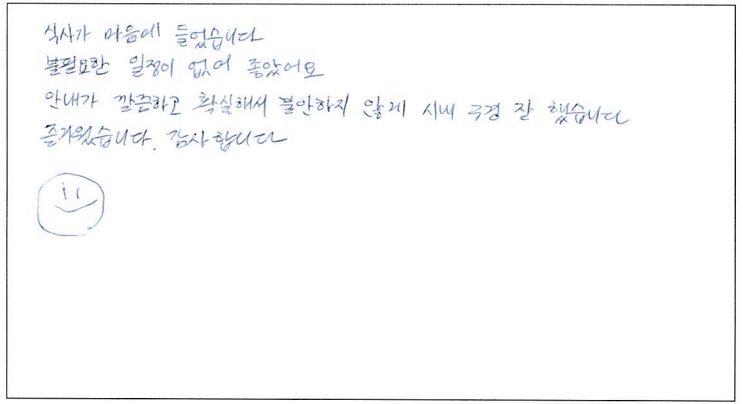 식사가 마음에 들었습니다
불필요한 일정이 없어 좋았어요
안내가 깔끔하고 확실해서 불안하지 않게 시내 구경 잘 했습니다
즐거웠습니다. 감사합니다